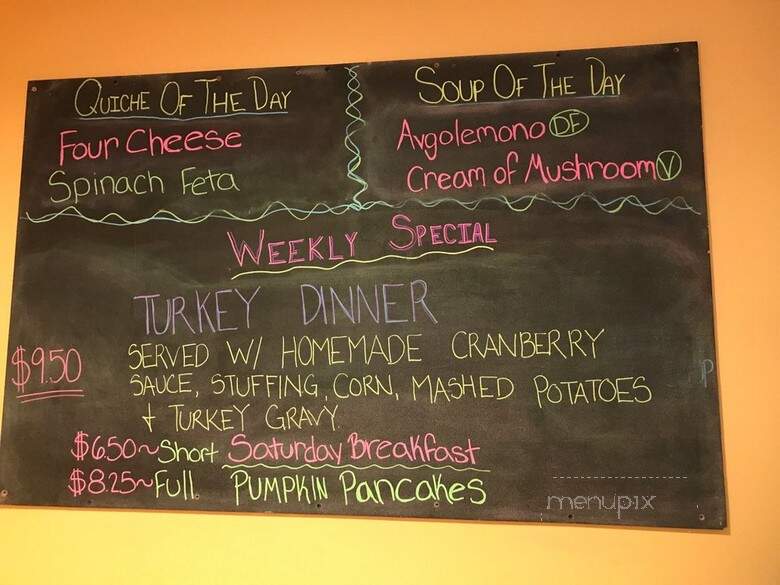 QUICHE OF THE DAY
Four Cheese
Spinach Feta
SOUP OF THE DAY
Avgolemono DF
Cream of Mushroom V
WEEKLY SPECIAL
TURKEY DINNER
$9.50 SERVED W/ HOMEMADE CRANBERRY
SAUCE, STUFFING, CORN, MASHED POTATOES
+ TURKEY GRAVY.
$6.50~Short Saturday Breakfast
$8.25~Full PUMPKIN PANCAKES
P
menupix